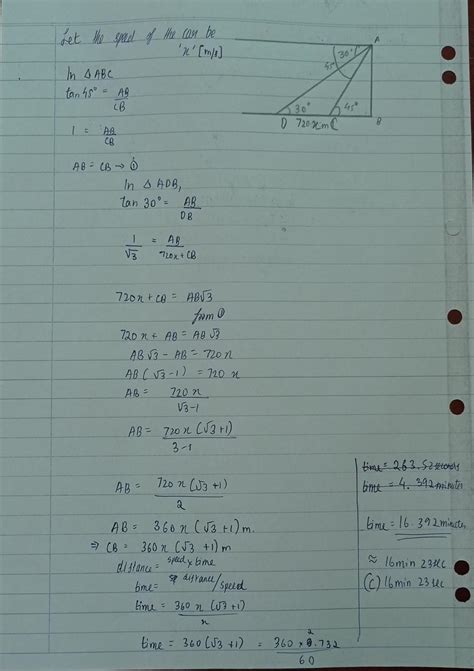 Let the speed of the car be
'x' [m/s]
A
30°
45°
30°
45°
D 720x m C B
In △ ABC
tan 45° = AB/CB
1 = AB/CB
AB = CB → ①
In △ ADB,
tan 30° = AB/DB
1/√3 = AB/720x + CB
720x + CB = AB√3
from ①
720x + AB = AB√3
AB√3 - AB = 720x
AB(√3 - 1) = 720x
AB = 720x/√3-1
AB = 720x(√3+1)/3-1
AB = 720x(√3+1)/2
AB = 360x(√3+1) m.
⇒ CB = 360x(√3+1) m
distance = speed × time
time = distance/speed
time = 360x(√3+1)/x
time = 360(√3+1) = 360 × 2.732/60
time = 263.52 seconds
time = 4.392 minutes
time = 16.392 minutes
≈ 16 min 23 sec
(C) 16 min 23 sec